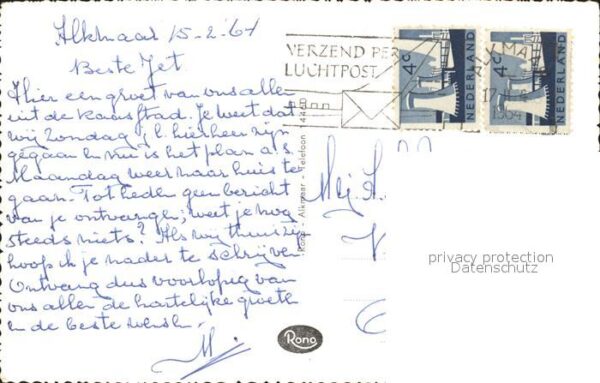 Alkmaar 15-2-'64
Beste Jet
Hier een groet van ons allen
uit de kaasstad. Je weet dat
wij Zondag j.l. hierheen zijn
gegaan en nu is het plan a.s.
Maandag weer naar huis te
gaan. Tot heden geen bericht
van je ontvangen; weet je nog
steeds niets? Als wij thuis zijn
hoop ik je nader te schrijven
Ontvang dus voorlopig van
ons allen de hartelijke groeten
en de beste wensen.
M.
VERZEND PER
LUCHTPOST
4c
NEDERLAND
4c
NEDERLAND
ALKMAAR
17
1964
Rono - Alkmaar - Telefoon 144
Mej.
privacy protection
Datenschutz
Rono